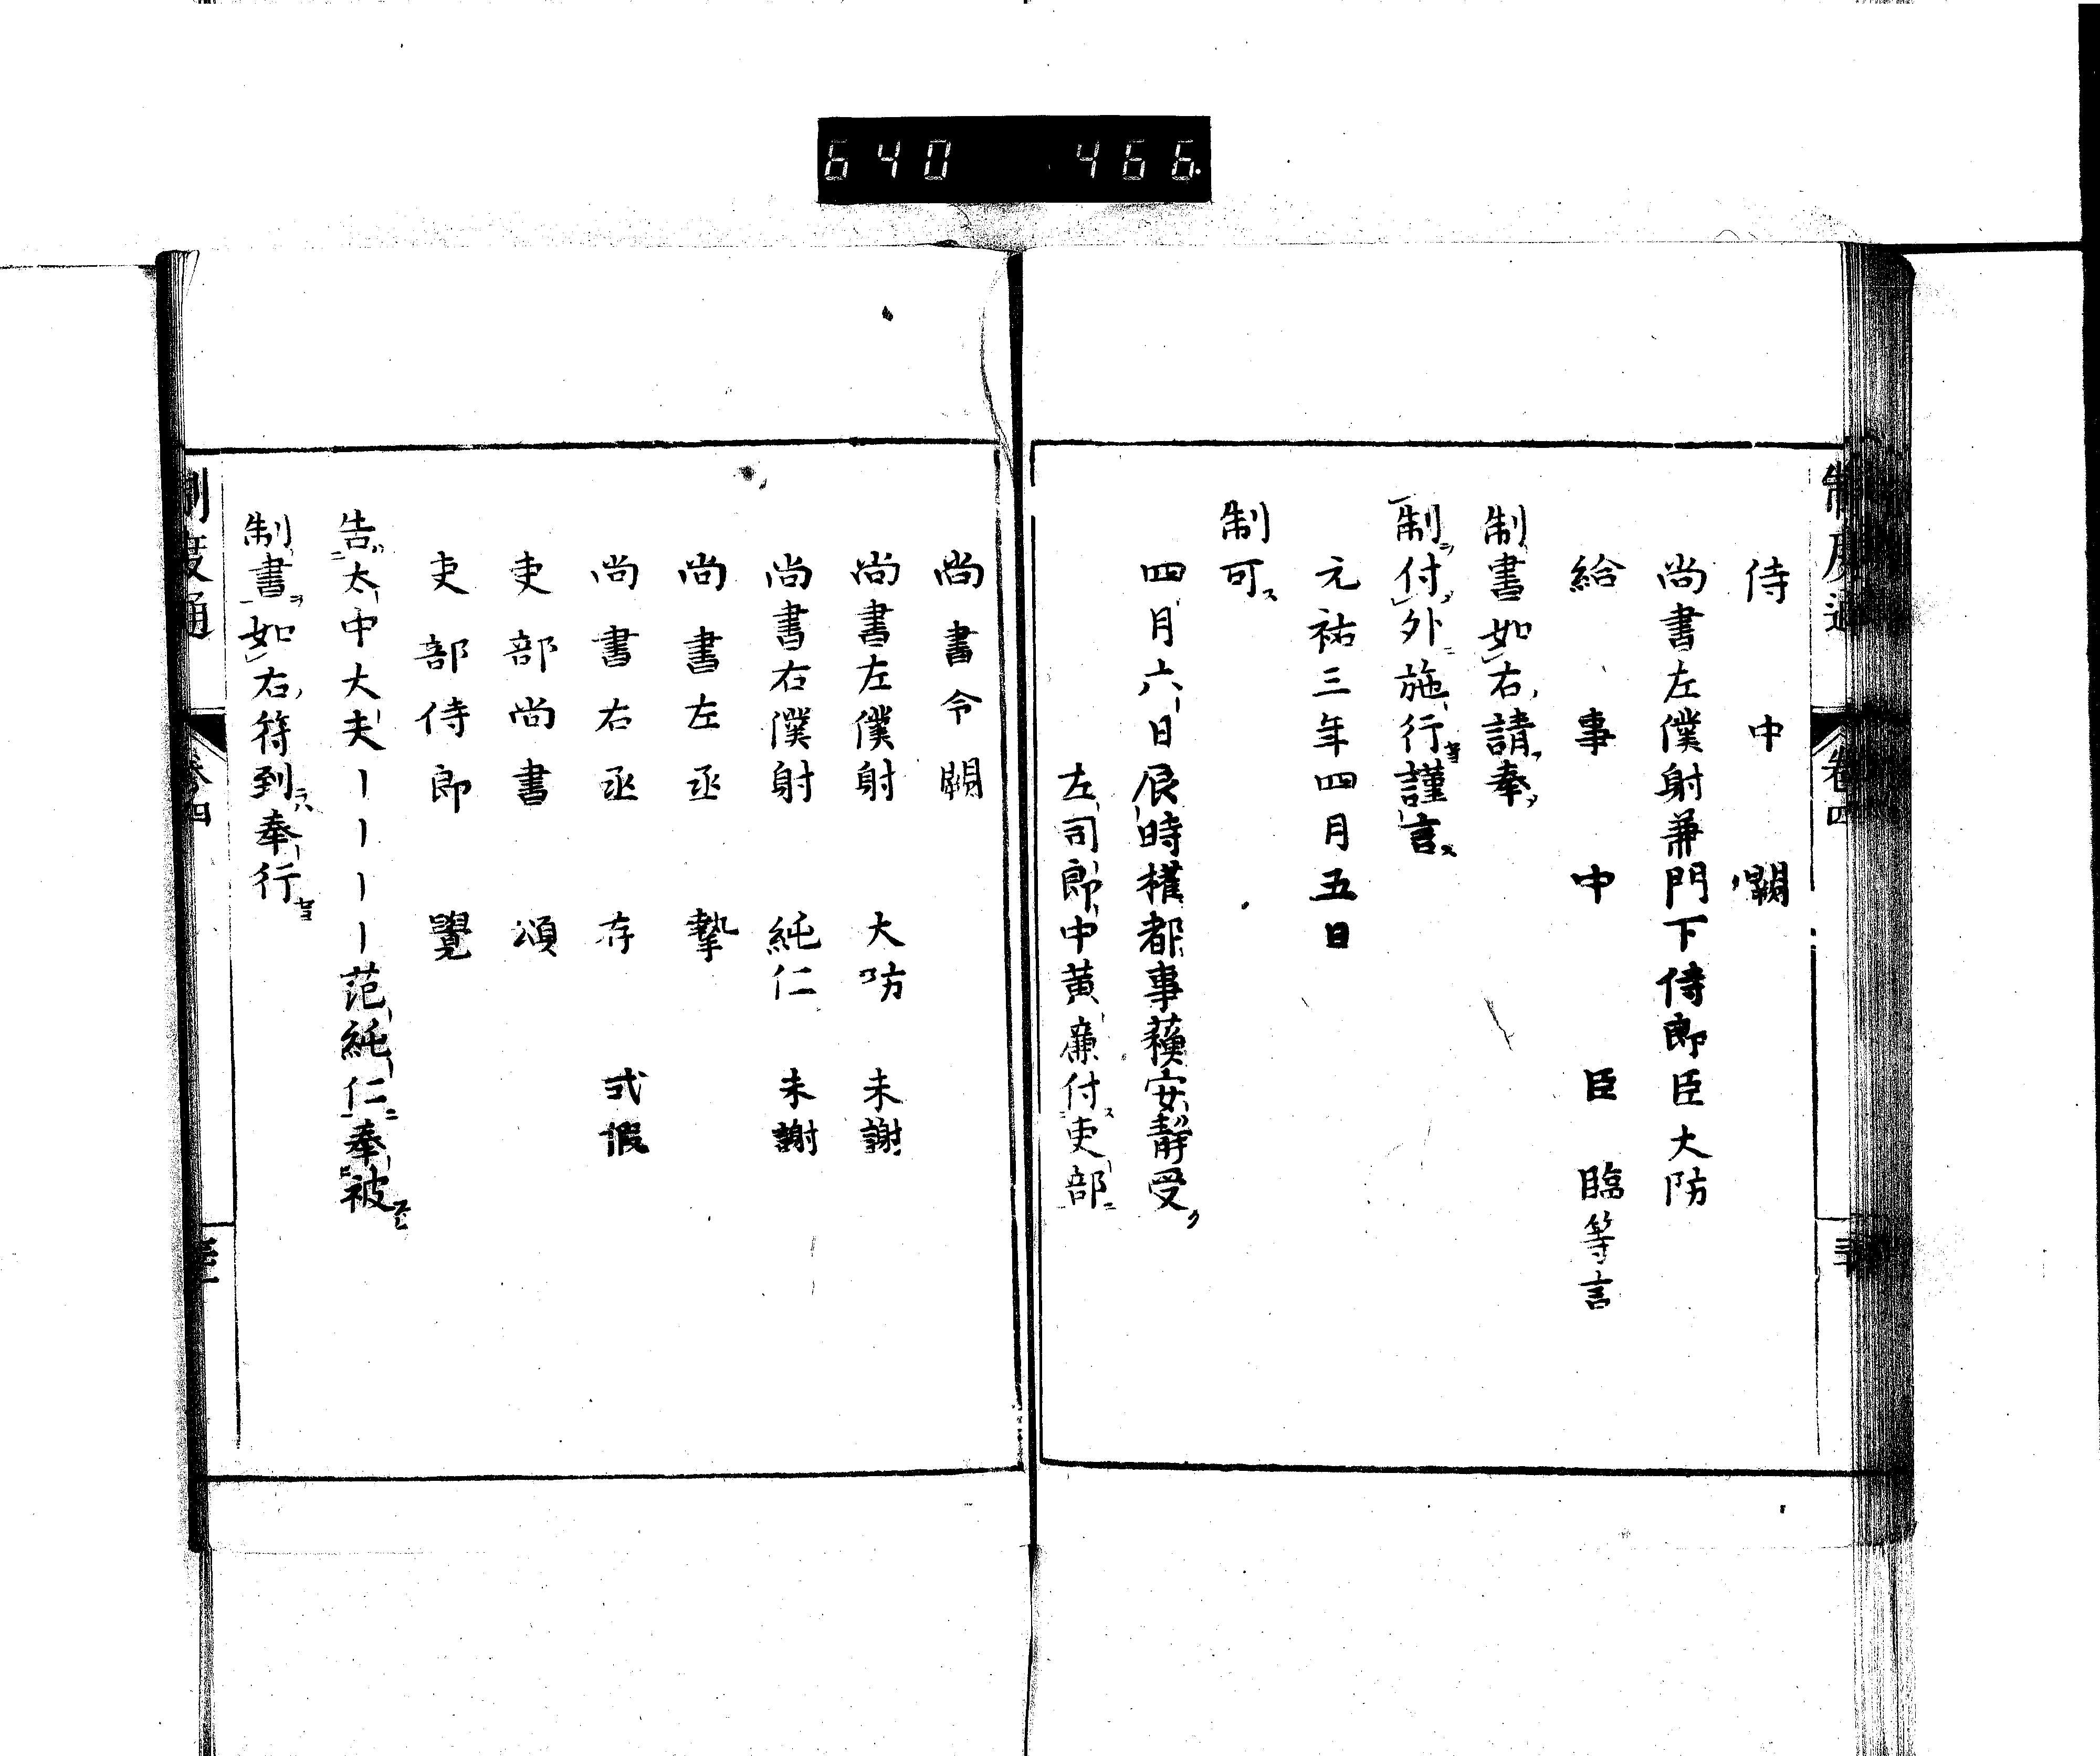 640 466
制度通 卷四
侍中闕
尚書左僕射兼門下侍郎臣大防
給事中臣臨等言
制書如右請奉
制付外施行謹言
元祐三年四月五日
制可
四月六日辰時權都事蘓安靜受
左司郎中黄廉付吏部
尚書令闕
尚書左僕射 大防 未謝
尚書右僕射 純仁 未謝
尚書左丞 摯
尚書右丞 存 式假
吏部尚書 頌
吏部侍郎 覺
告太中大夫ーーーー范純仁奉被
制書如右符到奉行
制度通 卷四